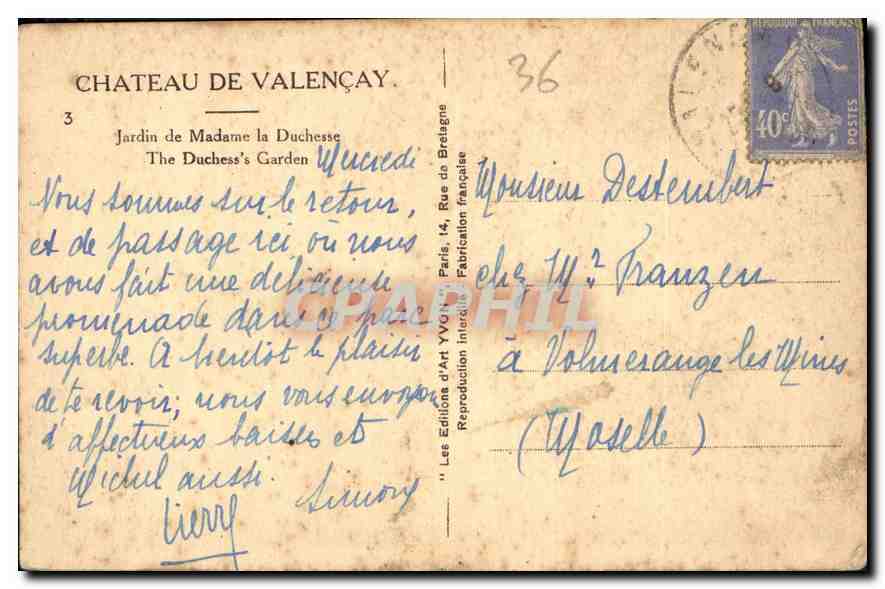 CHATEAU DE VALENÇAY
3
Jardin de Madame la Duchesse
The Duchess's Garden
Mercredi
Nous sommes sur le retour,
et de passage ici où nous
avons fait une délicieuse
promenade dans ce parc
superbe. A bientôt le plaisir
de te revoir; nous vous envoyons
d'affectueux baisers et
Michel aussi.
Simone
Pierre
" Les Editions d'Art YVON " Paris, 14, Rue de Bretagne
Reproduction interdite Fabrication française
36
REPUBLIQUE FRANÇAISE
40c
POSTES
Monsieur Destembert
chez Mr Franzen
à Volmerange les Mines
(Moselle)
CPAPHIL